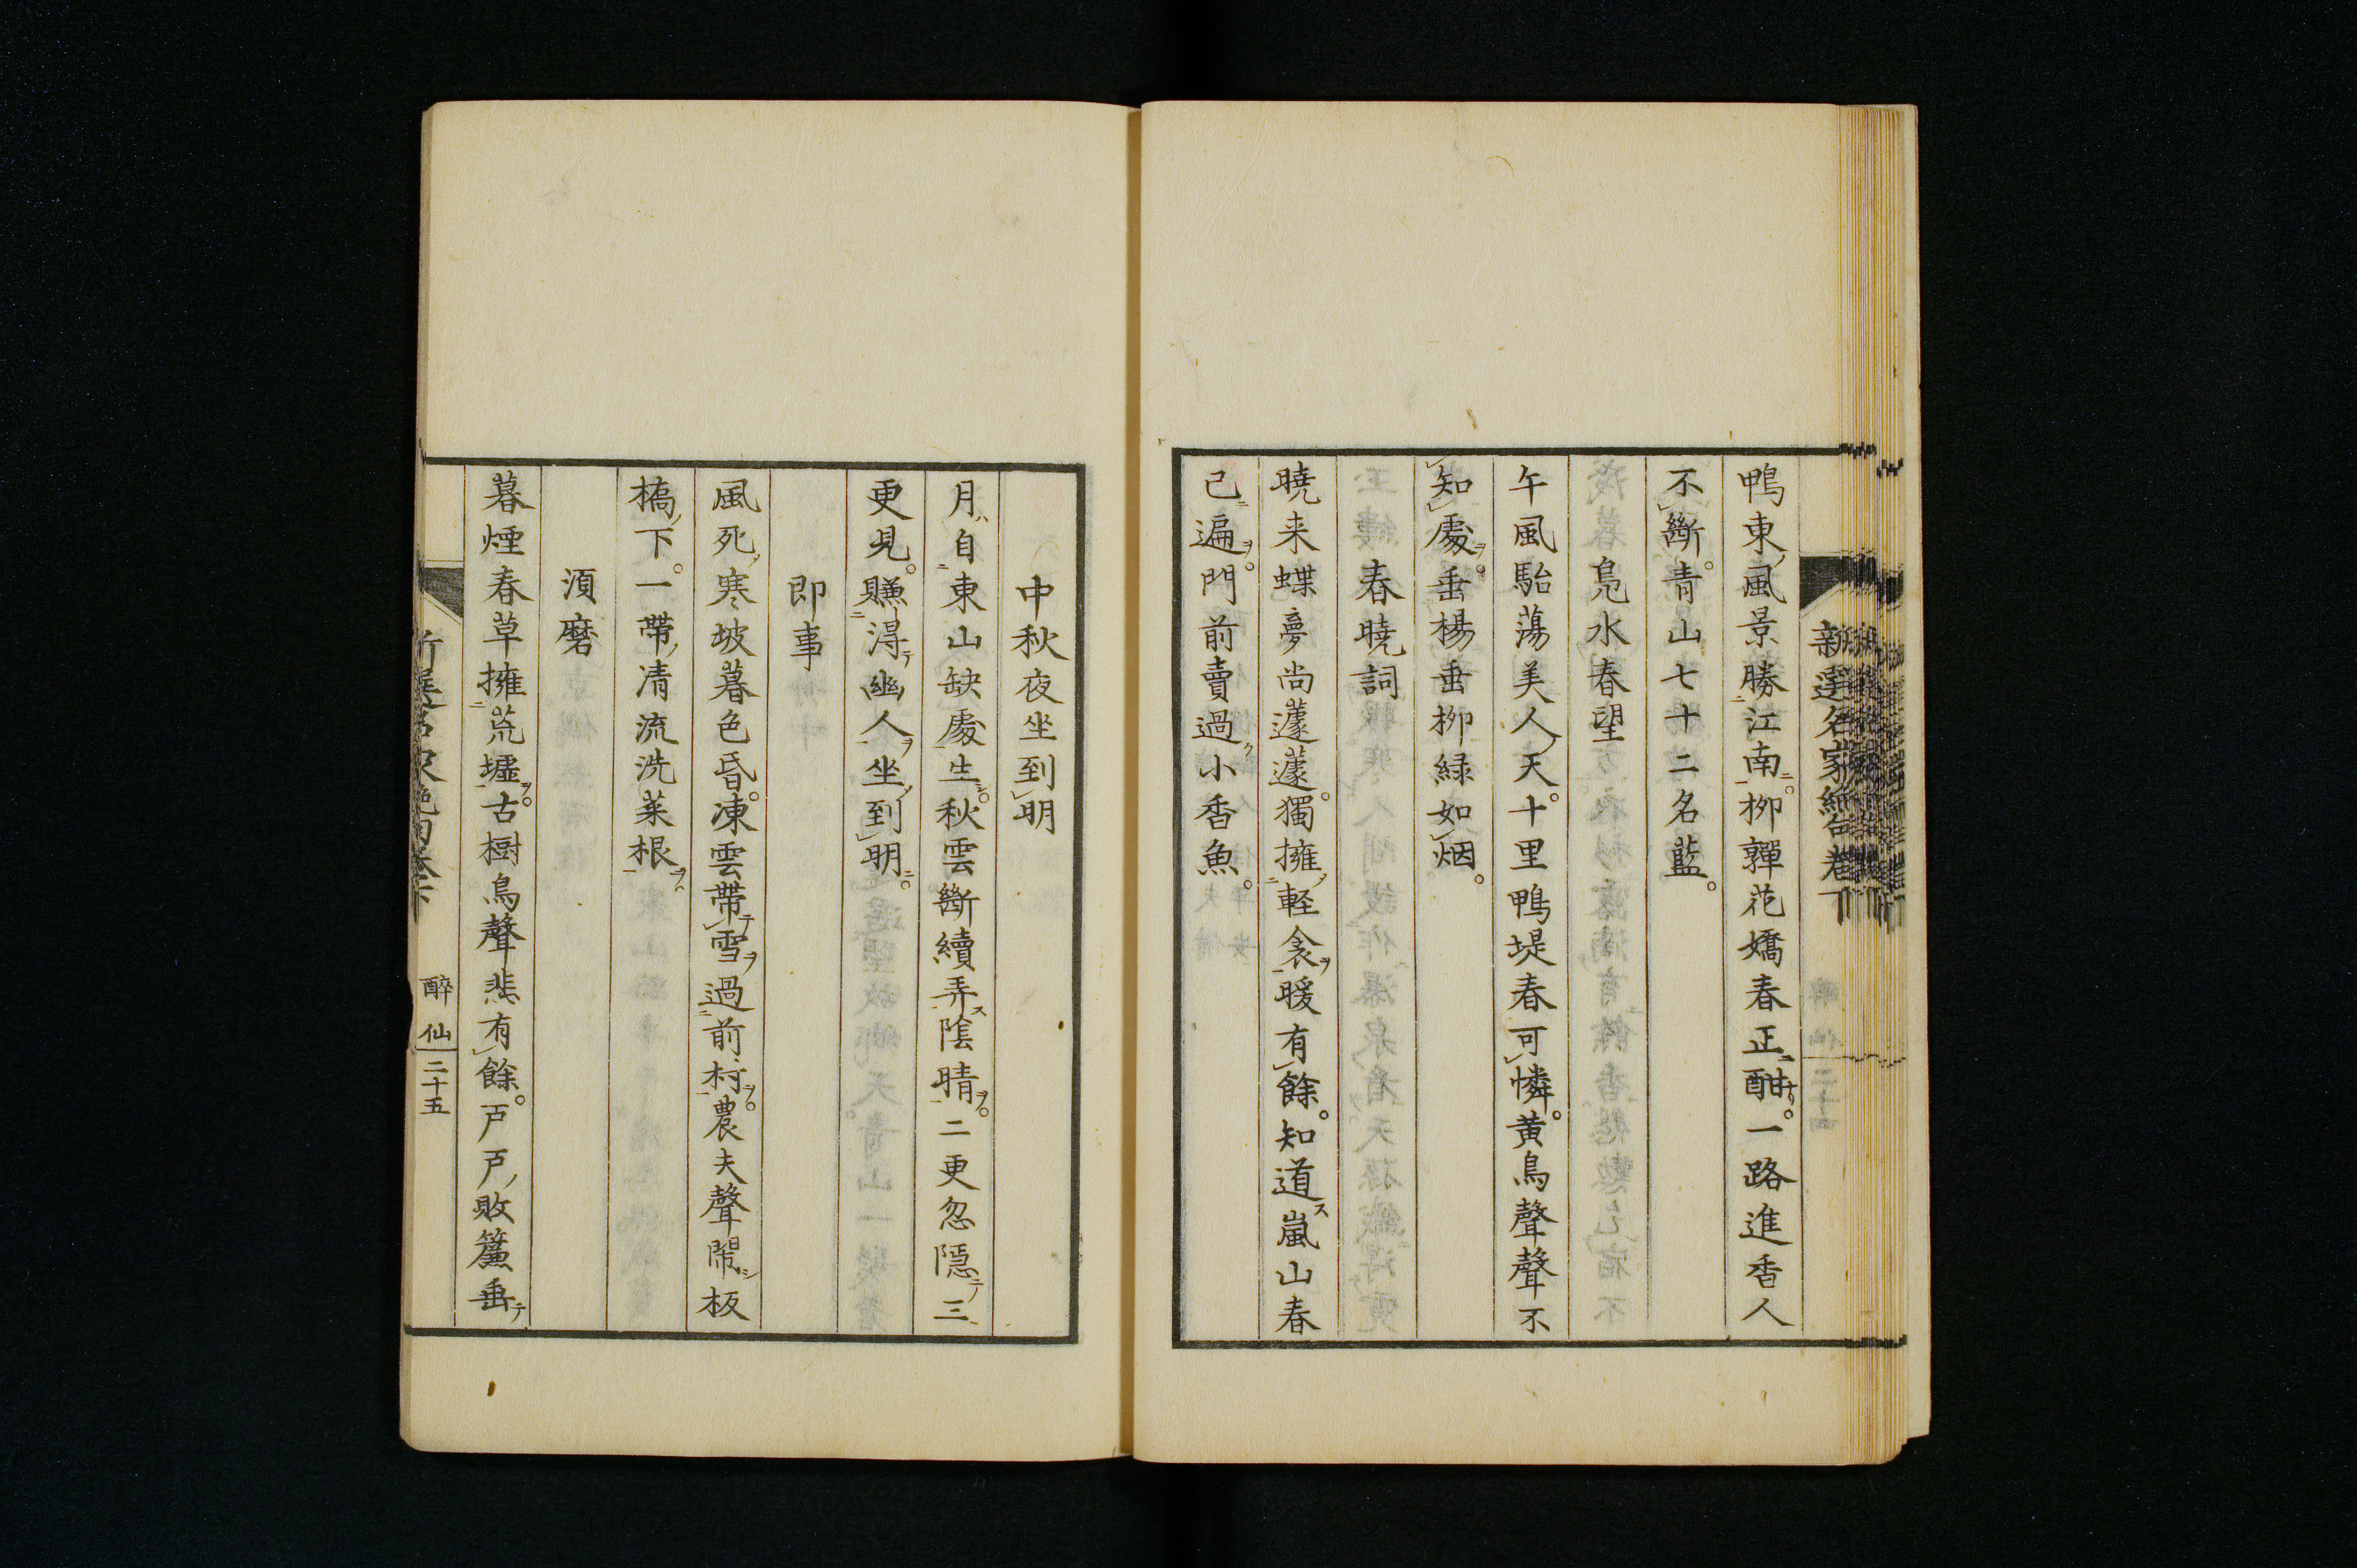 鴨東風景勝江南。柳嚲花嬌春正酣。一路進香人
不斷。青山七十二名藍。
鳧水春望
午風駘蕩美人天。十里鴨堤春可憐。黄鳥聲聲不
知處。垂楊垂柳緑如烟。
春曉詞
曉来蝶夢尚蘧蘧。獨擁軽衾暖有餘。知道嵐山春
已遍。門前賣過小香魚。
中秋夜坐到明
月自東山缺處生。秋雲斷續弄陰晴。二更忽隱三
更見。賺得幽人坐到明。
即事
風死寒坡暮色昏。凍雲帶雪過前村。農夫聲閙板
橋下。一帶清流洗菜根。
須磨
暮煙春草擁荒墟。古樹鳥聲悲有餘。戸戸敗簾垂
醉仙 二十五